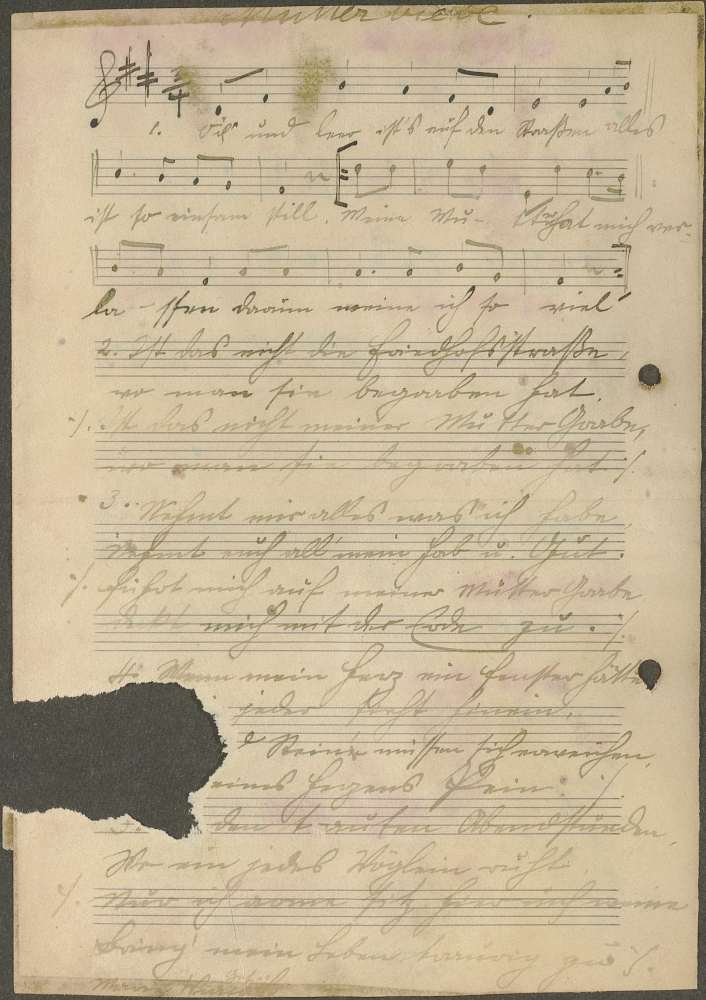 Mutterliebe.
1. Öd und leer ist's auf den Straßen alles
ist so einsam still. Meine Mu- tter hat mich ver-
la - ssen darum weine ich so viel
2. Ist das nicht die Friedhofsstraße,
wo man sie begraben hat.
./. Ist das nicht meiner Mutter Grabe,
wo man sie begraben hat ./.
3. Nehmt mir alles was ich habe,
Nehmt euch all' mein Hab u. Gut.
./. Führt mich auf meiner Mutter Grabe
deckt mich mit der Erde zu. ./.
4. Wenn mein Herz ein Fenster hätte
jeder sieht hinein,
Steine müssen sich erweichen,
eines Herzens Pein. ./.
5. den trauten Abendstunden,
Wo ein jedes Vöglein ruht.
./. Nur ich arme sitz hier und weine
bring' mein Leben traurig zu ./.